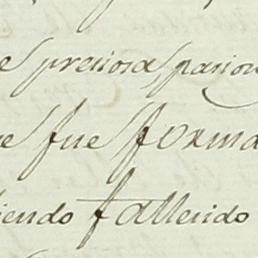 e preciosa, pasion
ue fue forma
iendo fallecido